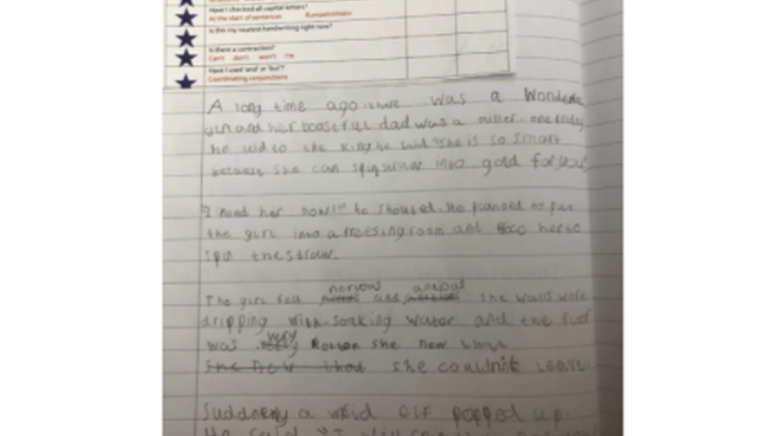 Have I checked all capital letters?
At the start of sentences Rumpelstiltskin
Is this my neatest handwriting right now?
Is there a contraction?
Can't don't won't I'm
Have I used 'and' or 'but'?
Coordinating conjunctions
A long time ago there was a
and her boastfull dad was a miller. one friday
he said to the king he said "she is so smart
because she can spin straw into gold for you
I need her now!" to shouted. He planned to put
the girl into a freesing room and her to
spin the straw.
nervous
The girl felt and the walls were
dripping with soaking water and the
very
was she new that
she new that she couldn't leave
Suddenly a weid elf popped up.
He said